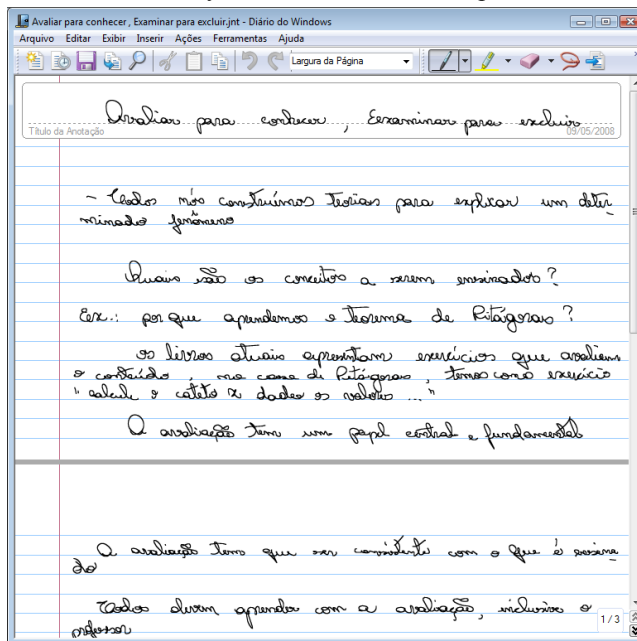 Avaliar para conhecer , Examinar para excluir.jnt - Diário do Windows
Arquivo Editar Exibir Inserir Ações Ferramentas Ajuda
Largura da Página
Avaliar para conhecer , Examinar para excluir
Título da Anotação 09/05/2008
- Todos nós construímos teorias para explicar um deter
minado fenômeno
Quais são os conceitos a serem ensinados?
Ex.: por que aprendemos o teorema de Pitágoras?
os livros atuais apresentam exercícios que avaliam
o conteúdo , no caso de Pitágoras , temos como exercício
" calcule o cateto x dados os valores ..."
A avaliação tem um papel central e fundamental
A avaliação tem que ser consistente com o que é ensina
do
Todos devem aprender com a avaliação, inclusive o
professor
1/3